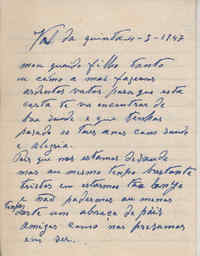 Val da quinta 11-3-1947
meu querido filho tanto
eu como a mãe fazemos
ardentes votos para que esta
carta te va encontrar de
boa saude e que tenhas
pasado os teus anos com saude
e alegria.
Pois que nos estamos de saude
mas ao mesmo tempo bastante
tristes em estarmos tão longe
e não podermos ao menos
darte um abraço de pais
amigos como nos presamos
em ser.